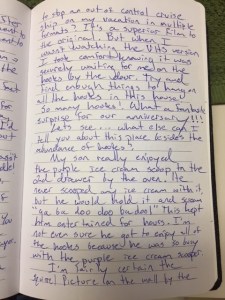 to stop an out of control cruise
ship on my vacation in multiple
formats? It's a superior film to
the original. But when I
wasn't watching the VHS version
I took comfort knowing it was
securely waiting for me on the
hooks by the door. Try and
find enough things to hang on
all the hooks in this house!
So many hooks! What a fantastic
surprise for our anniversary!!!
Let's see... what else can I
tell you about this place besides the
abundance of hooks?
My son really enjoyed
the purple ice cream scoop in the
odd drawer by the oven. He
never scooped any ice cream with it,
but he would hold it and scream
"ga ba doo doo badoo!" This kept
him entertained for hours. I'm
not even sure he got to enjoy all of
the hooks because he was so busy
with the purple ice cream scooper.
I'm fairly certain the
squirrel picture on the wall by the